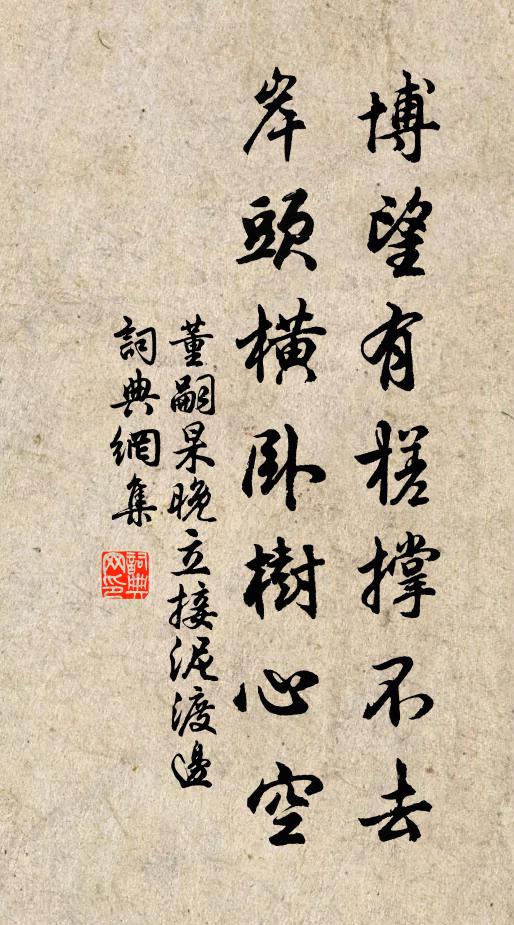 博望有槎撐不去
岸頭橫臥樹心空
董嗣杲晚立接泥渡邊
詞典網集
詞典網印